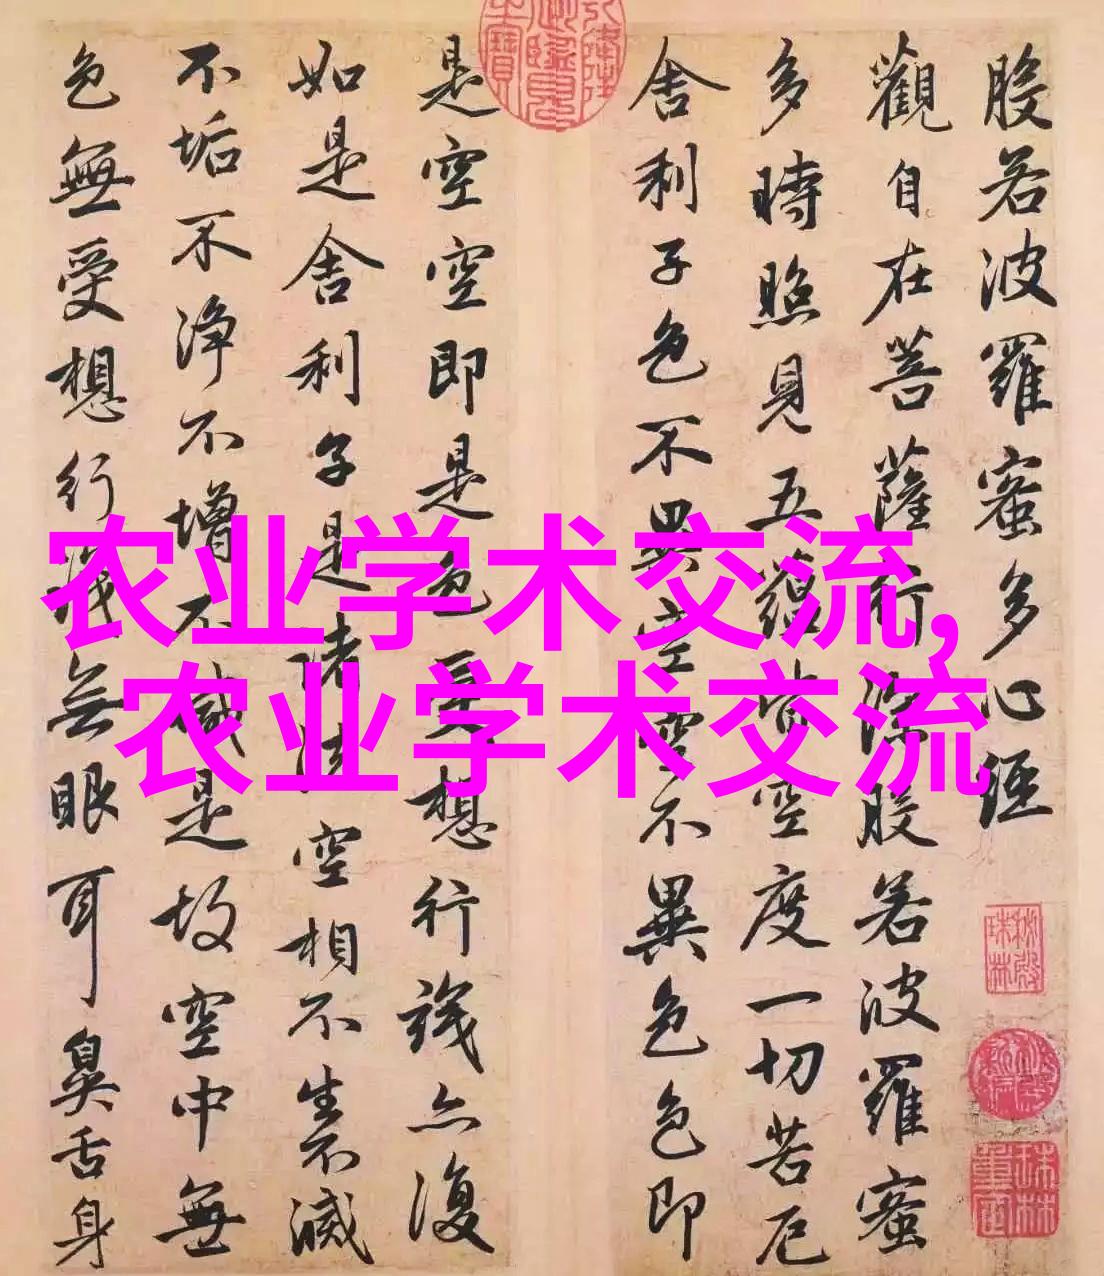 般若波羅蜜多心經
觀自在菩薩行深般若波羅蜜
多時照見五蘊皆空度一切苦厄
舍利子色不異空空不異色色即
是空空即是色受想行識亦復
如是舍利子是諸法空相不生不滅
不垢不净不增不減是故空中無
色無受想行識无眼耳鼻舌身
农业学术交流,
农业学术交流